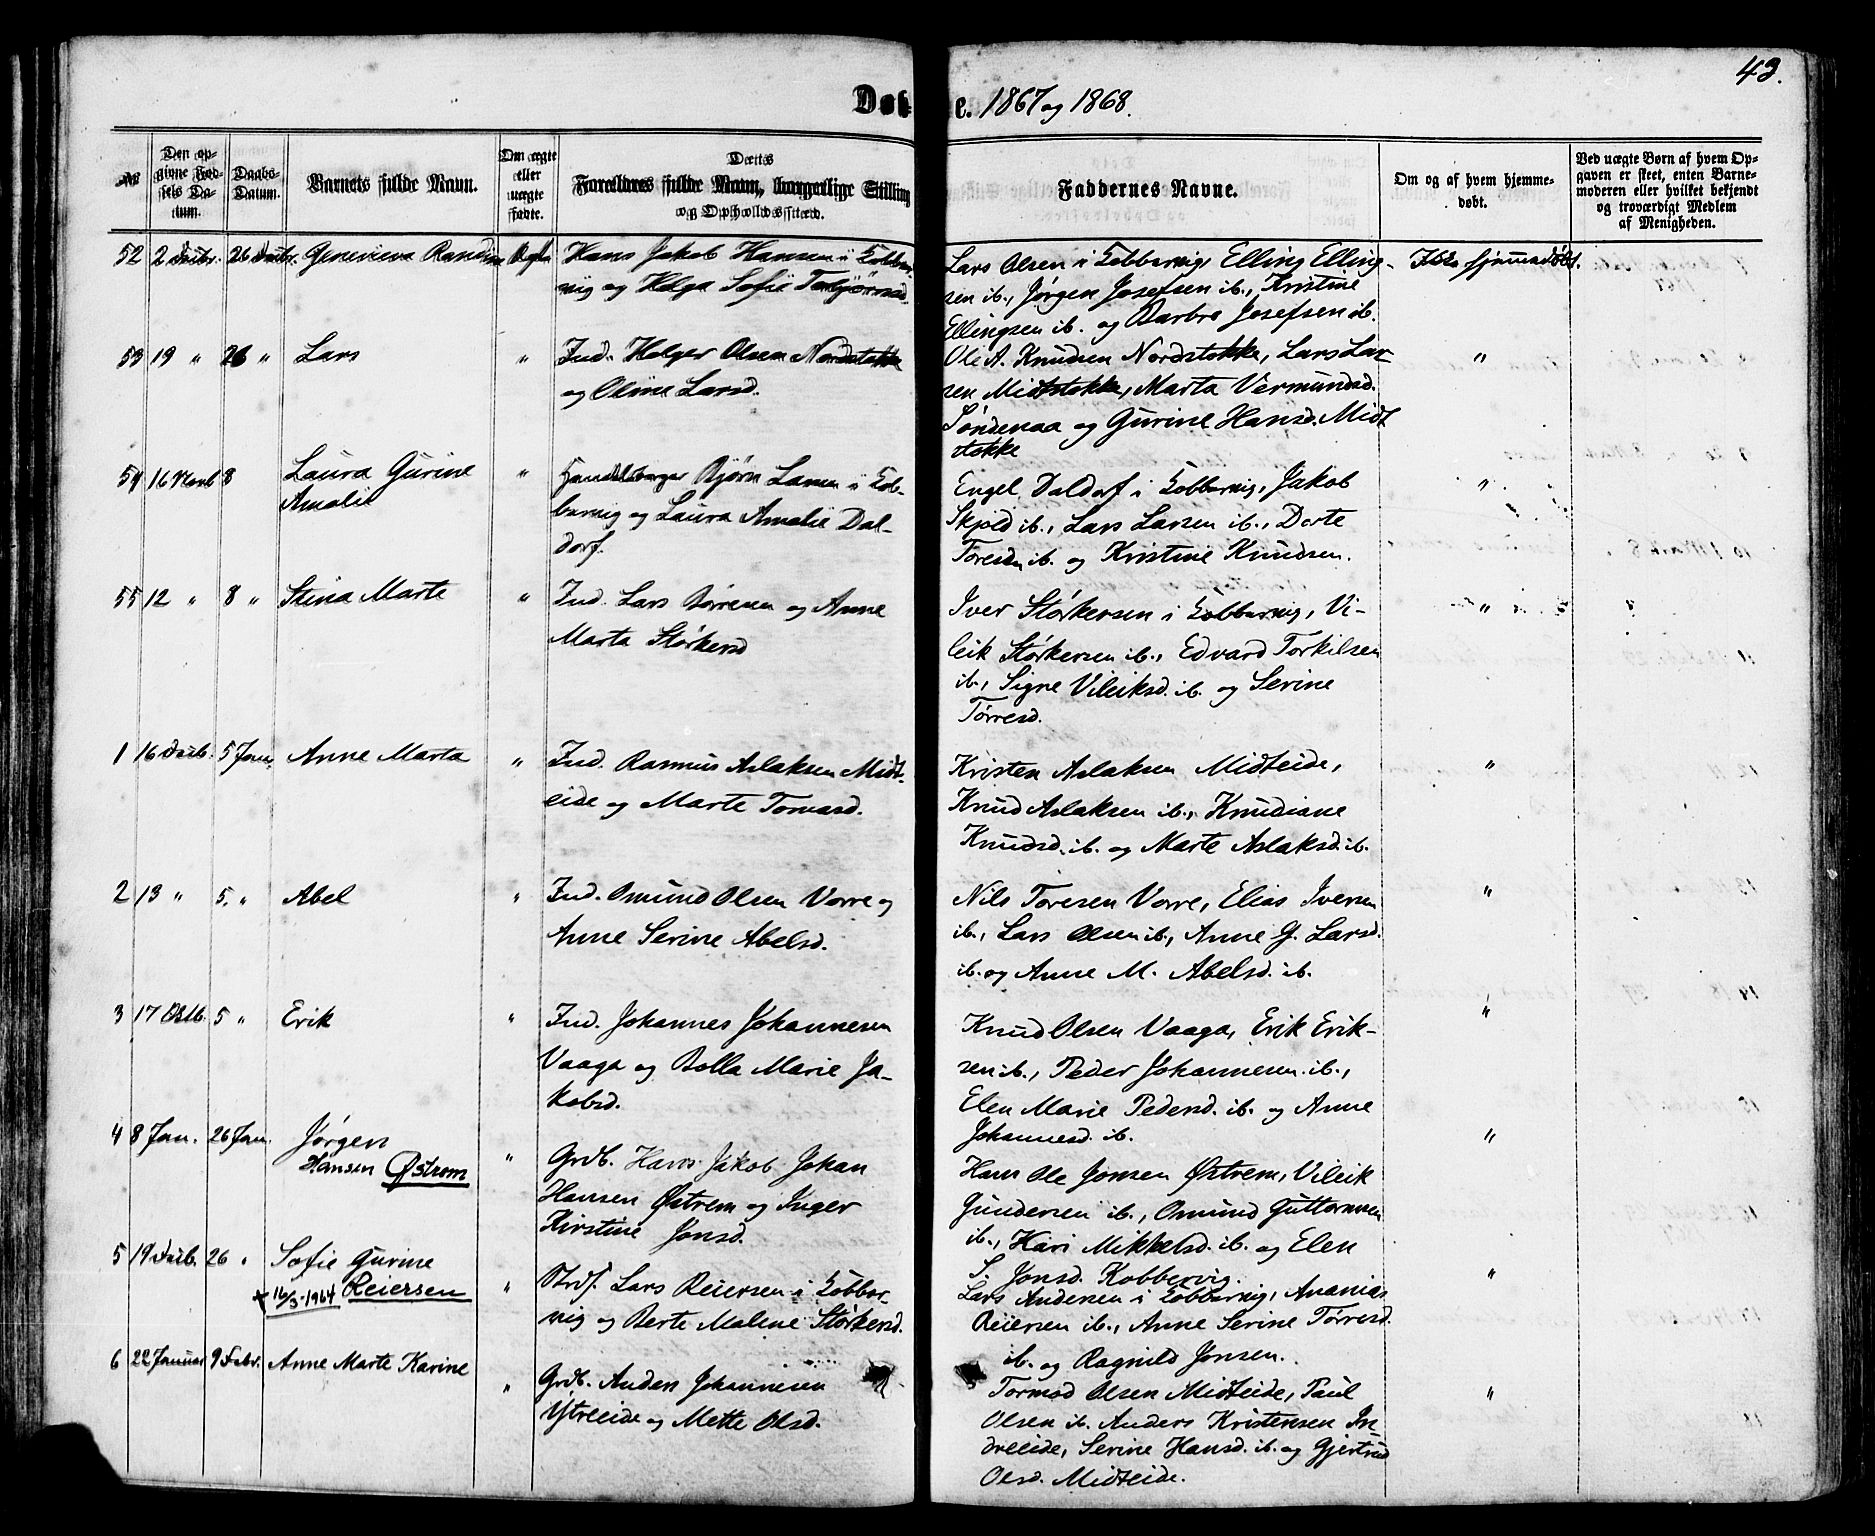 43.
Døbte. 1867 og 1868.
No
Den opgivne Fødsels Datum.
Daabs-Datum.
Barnets fulde Navn.
Om ægte eller uægte fødte.
Dettes Forældres fulde Navn, borgerlige Stilling og Opholdssted.
Faddernes Navne.
Om og af hvem hjemmedøbt.
Ved uægte Børn af hvem Opgaven er skeet, enten Barnemoderen eller hvilket bekjendt og troværdigt Medlem af Menigheden.
52 2 Decbr. 26 Decbr. Genevieva Randine Ægte Hans Jakob Hansen i Kobber-
vig og Helga Sofie Torbjørnsd.
Lars Olsen i Kobbervig, Elling Elling-
sen ib., Jørgen Josefsen ib., Kristine
Ellingsen ib. og Barbro Josefsen ib.
Ikke hjemmedøbt.
53 19 " 26 " Lars " Ind. Holger Olsen Nordstokke
og Oline Larsd.
Ole A. Knudsen Nordstokke, Lars Lar-
sen Midtstokke, Marta Vermundsd.
Søndenaa og Gurine Hansd. Midt
stokke
"
54 16 Novb 8 Laura Gurine
Amalie
" Handelsborger Bjørn Larsen i Kob-
bervig og Laura Amalie Dal-
dorf.
Engel Daldorf i Kobbervig, Jakob
Skjold ib., Lars Larsen ib., Dorte
Toresen ib. og Kristine Knudsen.
"
55 12 " 8 " Stina Marte " Ind. Lars Børresen og Anne
Marta Størkersd
Iver Størkersen i Kobbervig, Vi-
leik Størkersen ib., Edvard Torkilsen
ib., Signe Vileiksd. ib. og Serine
Tørresd.
"
1 16 Decb. 5 Jan. Anne Marta " Ind. Rasmus Aslaksen Midt-
eide og Marte Tomasd.
Kristen Aslaksen Midteide,
Knud Aslaksen ib., Knudiane
Knudsd. ib. og Marte Aslaksd. ib.
"
2 13 " 5. " Abel " Ind. Omund Olsen Vorre og
Anne Serine Abelsd.
Nils Toresen Vorre, Elias Iversen
ib., Lars Olsen ib., Anne G. Larsd.
ib. og Anne M. Abelsd. ib.
"
3 17 Oktb. 5 " Erik " Ind. Johannes Johannesen
Vaaga og Bolla Marie Ja-
kobsd.
Knud Olsen Vaaga, Erik Erik-
sen ib., Peder Johannesen ib.,
Elen Marie Pedersd. ib. og Anne
Johannesd. ib.
"
4 8 Jan. 26 Jan. Jørgen
Hansen Østrem
" Grdb. Hans Jakob Johan
Hansen Østrem og Inger
Kirstine Jonsd.
Hans Ole Jonsen Østrem, Vileik
Gundersen ib., Omund Guttormsen
ib., Kari Mikkelsd. ib. og Elen
S. Jonsd. Kobbervig.
"
5 19 Decb. 26 " Sofie Gurine
+ 16/3-1964 Reiersen
" Strdf. Lars Reiersen i Kobber-
vig og Berte Malene Størkersd.
Lars Andersen i Kobbervig, Ananias
Reiersen ib., Anne Serine Tørresd.
ib. og Ragnild Jonsen.
"
6 22 Januar 9 Febr. Anne Marte Karine
" Grdb. Anders Johannesen
Ytreeide og Mette Olsd.
Tormod Olsen Midteide, Paul
Olsen ib. Anders Kristensen In-
dreeide, Serine Hansd. ib. og Gjertrud
Olsd. Midteide.
"